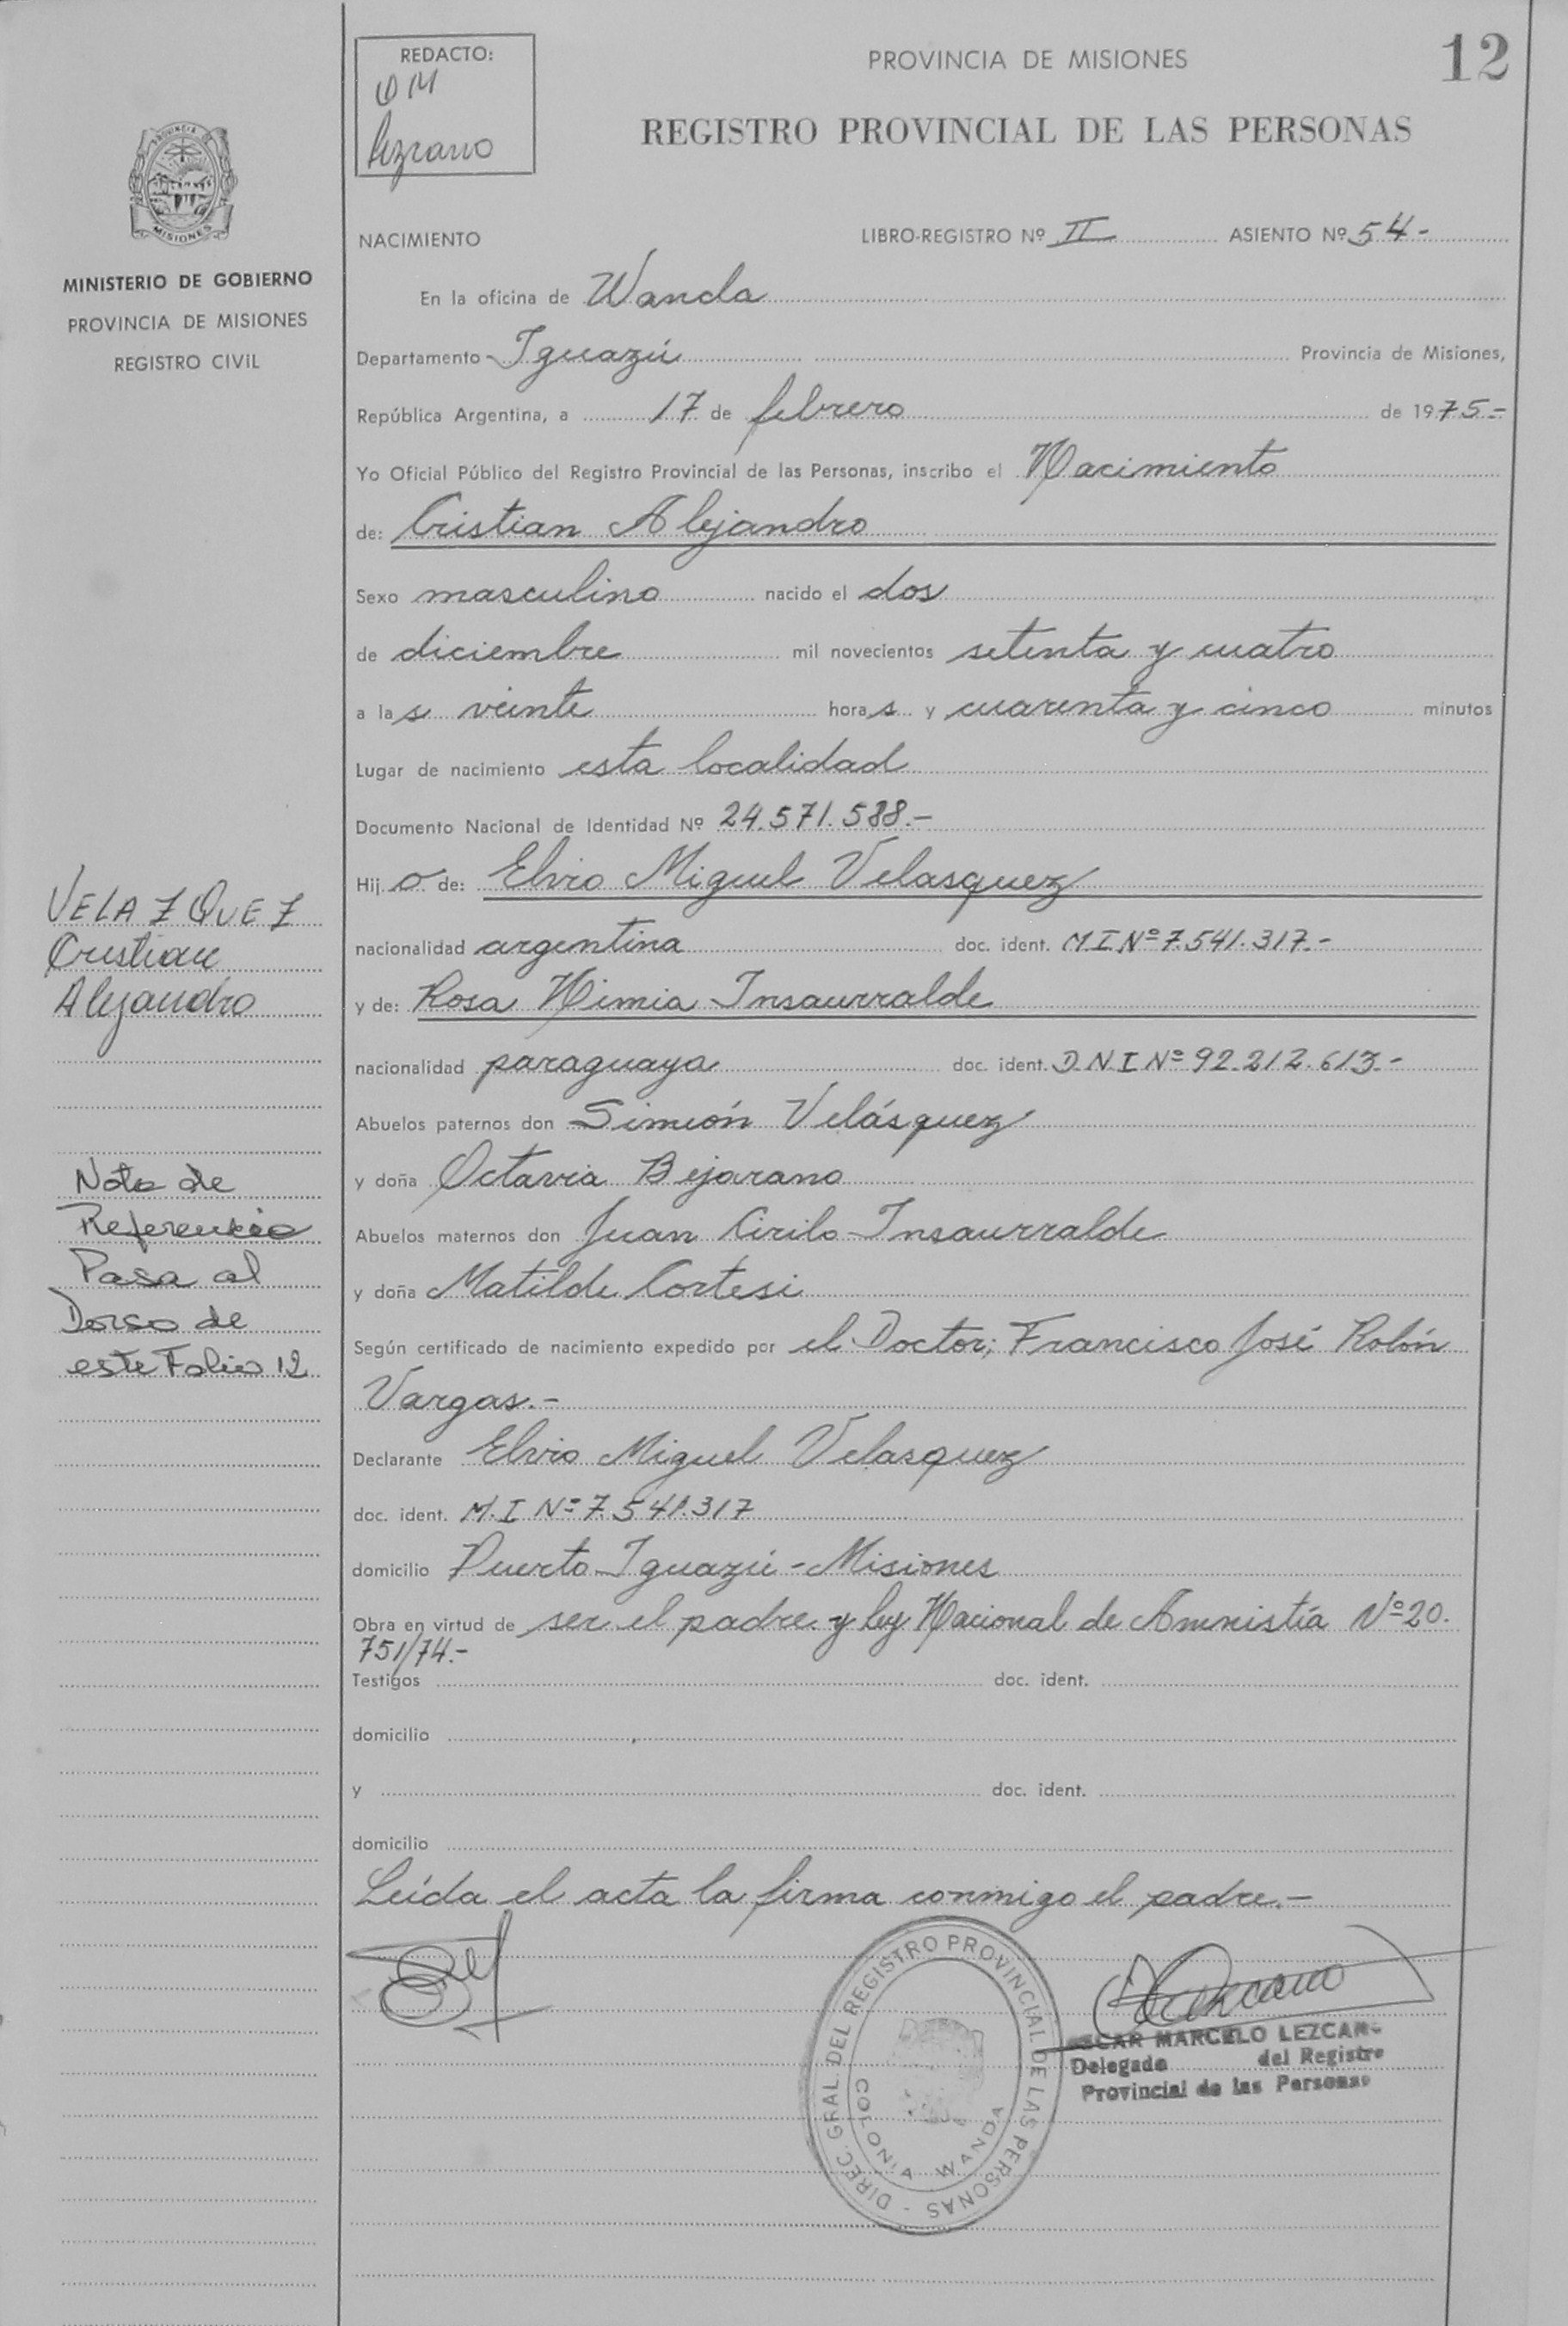 REDACTO:
OM
Lezcano
PROVINCIA DE MISIONES
12
REGISTRO PROVINCIAL DE LAS PERSONAS
MISIONES
MINISTERIO DE GOBIERNO
PROVINCIA DE MISIONES
REGISTRO CIVIL
NACIMIENTO LIBRO-REGISTRO Nº II ASIENTO Nº 54-
En la oficina de Wanda
Departamento Iguazú Provincia de Misiones,
República Argentina, a 17 de febrero de 1975-
Yo Oficial Público del Registro Provincial de las Personas, inscribo el Nacimiento
de: Cristian Alejandro
Sexo masculino nacido el dos
de diciembre mil novecientos setenta y cuatro
a las veinte horas y cuarenta y cinco minutos
Lugar de nacimiento esta localidad
Documento Nacional de Identidad Nº 24.571.588.-
Hijo de: Elvio Miguel Velasquez
nacionalidad argentina doc. ident. M I Nº 7.541.317.-
y de: Rosa Nimia Insaurralde
nacionalidad paraguaya doc. ident. D.N.I Nº 92.212.613-
Abuelos paternos don Simeón Velásquez
y doña Octavia Bejarano
Abuelos maternos don Juan Cirilo Insaurralde
y doña Matilde Cortesi
Según certificado de nacimiento expedido por el Doctor; Francisco José Rolón
Vargas.-
Declarante Elvio Miguel Velasquez
doc. ident. M.I Nº 7.541.317
domicilio Puerto Iguazú - Misiones
Obra en virtud de ser el padre y ley Nacional de Amnistía Nº 20.
751/74.-
Testigos doc. ident.
domicilio
y doc. ident.
domicilio
Leída el acta la firma conmigo el padre.-
VELAZQUEZ
Cristian
Alejandro
Nota de
Referencia
Pasa al
Dorso de
este Folio 12
DIREC. GRAL. DEL REGISTRO PROVINCIAL DE LAS PERSONAS -
COLONIA WANDA
OSCAR MARCELO LEZCANO
Delegado del Registro
Provincial de las Personas